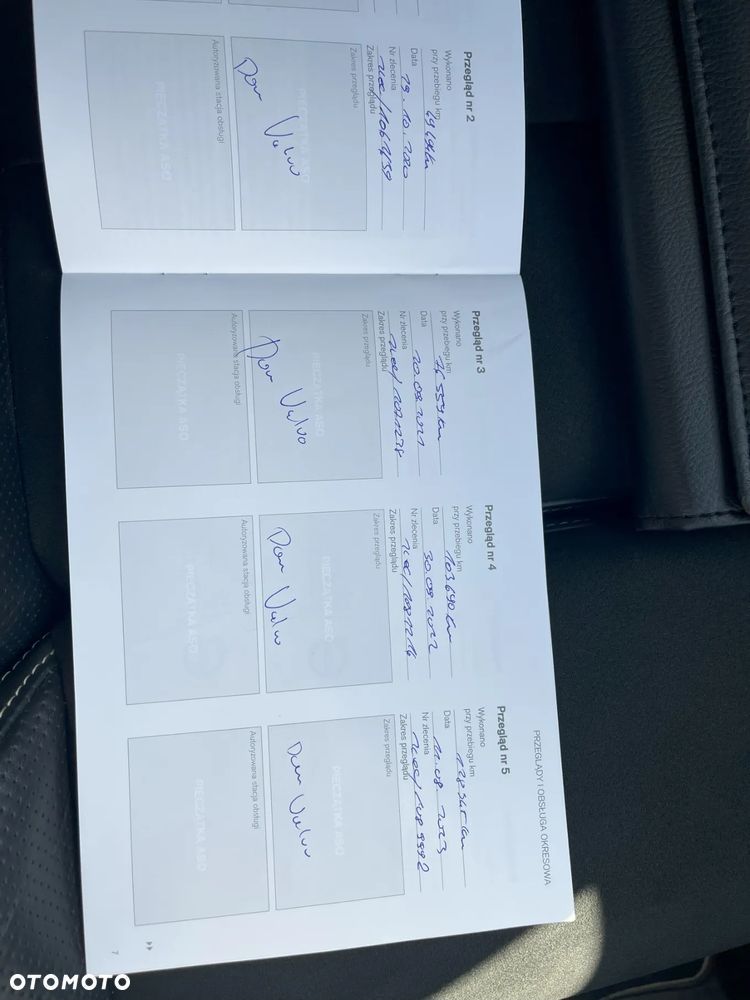 Przegląd nr 2
Wykonano
przy przebiegu km
Data 19.10.2020
Nr zlecenia
Zakres przeglądu
Zakres przeglądu
Dom Volvo
PIECZĄTKA ASO
Autoryzowana stacja obsługi
PIECZĄTKA ASO
PRZEGLĄDY I OBSŁUGA OKRESOWA
Przegląd nr 3
Wykonano
przy przebiegu km
Data 20.09.2021
Nr zlecenia
Zakres przeglądu
Zakres przeglądu
Dom Volvo
PIECZĄTKA ASO
Autoryzowana stacja obsługi
PIECZĄTKA ASO
Przegląd nr 4
Wykonano
przy przebiegu km 103690 km
Data 30.09.2022
Nr zlecenia
Zakres przeglądu
Zakres przeglądu
Dom Volvo
PIECZĄTKA ASO
Autoryzowana stacja obsługi
PIECZĄTKA ASO
Przegląd nr 5
Wykonano
przy przebiegu km 128345 km
Data 11.08.2023
Nr zlecenia
Zakres przeglądu
Zakres przeglądu
Dom Volvo
PIECZĄTKA ASO
Autoryzowana stacja obsługi
PIECZĄTKA ASO
7
OTOMOTO